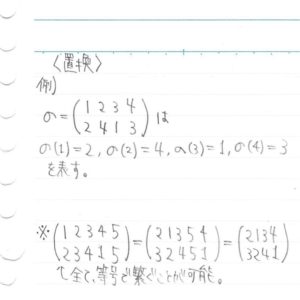 〈置換〉
例)
σ = ( 1 2 3 4
2 4 1 3 ) は
σ(1) = 2, σ(2) = 4, σ(3) = 1, σ(4) = 3
を表す。
※ ( 1 2 3 4 5
2 3 4 1 5 ) = ( 2 1 3 5 4
3 2 4 5 1 ) = ( 2 1 3 4
3 2 4 1 )
↑全て、等号で繋ぐことが可能。